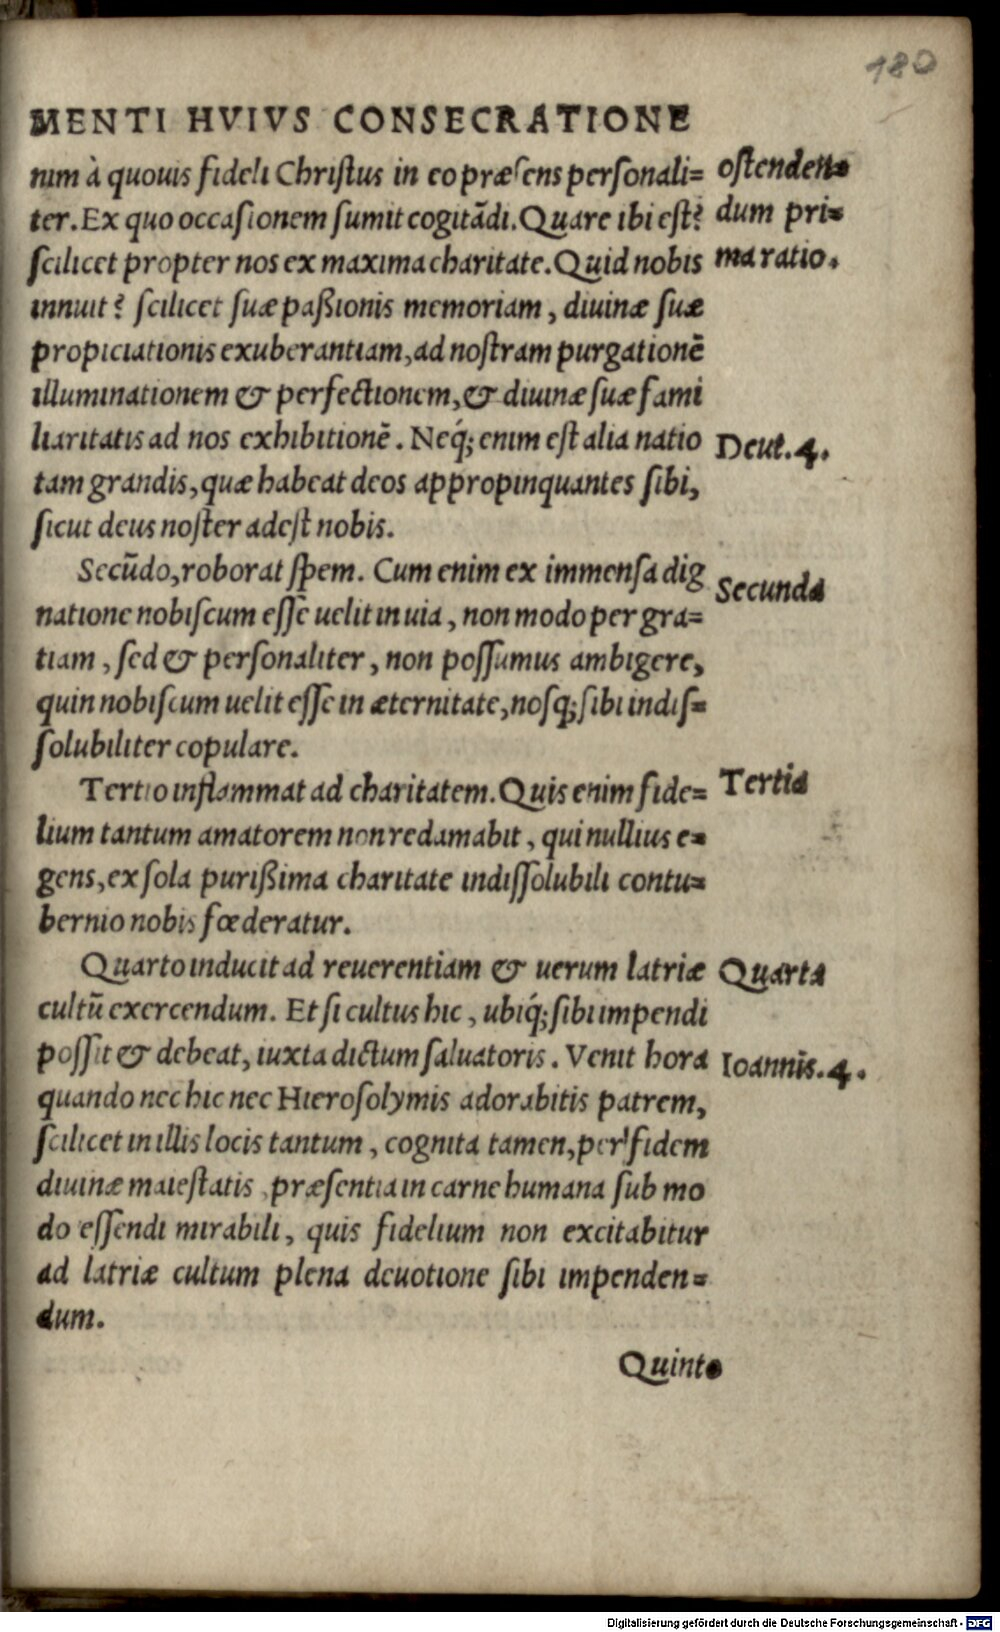 180
MENTI HVIVS CONSECRATIONE
nim à quouis fideli Christus in eo præsens personali=
ter. Ex quo occasionem sumit cogitãdi. Quare ibi est?
scilicet propter nos ex maxima charitate. Quid nobis
innuit? scilicet suæ paßionis memoriam, diuinæ suæ
propiciationis exuberantiam, ad nostram purgationẽ
illuminationem & perfectionem, & diuinæ suæ fami
liaritatis ad nos exhibitionẽ. Neq́; enim est alia natio
tam grandis, quæ habeat deos appropinquantes sibi,
sicut deus noster adest nobis.
Secũdo, roborat spem. Cum enim ex immensa dig
natione nobiscum esse uelit in uia, non modo per gra=
tiam, sed & personaliter, non possumus ambigere,
quin nobiscum uelit esse in æternitate, nosq; sibi indis=
solubiliter copulare.
Tertio inflammat ad charitatem. Quis enim fide=
lium tantum amatorem non redamabit, qui nullius e=
gens, ex sola purißima charitate indissolubili contu=
bernio nobis fœderatur.
Quarto inducit ad reuerentiam & uerum latriæ
cultũ exercendum. Et si cultus hic, ubiq́; sibi impendi
possit & debeat, iuxta dictum saluatoris. Venit hora
quando nec hic nec Hierosolymis adorabitis patrem,
scilicet in illis locis tantum, cognita tamen, per fidem
diuinæ maiestatis, præsentia in carne humana sub mo
do essendi mirabili, quis fidelium non excitabitur
ad latriæ cultum plena deuotione sibi impenden=
dum.
Quinto
ostenden=
dum pri=
ma ratio.
Deut. 4.
Secunda
Tertia
Quarta
Ioannis. 4.
Digitalisierung gefördert durch die Deutsche Forschungsgemeinschaft - DFG